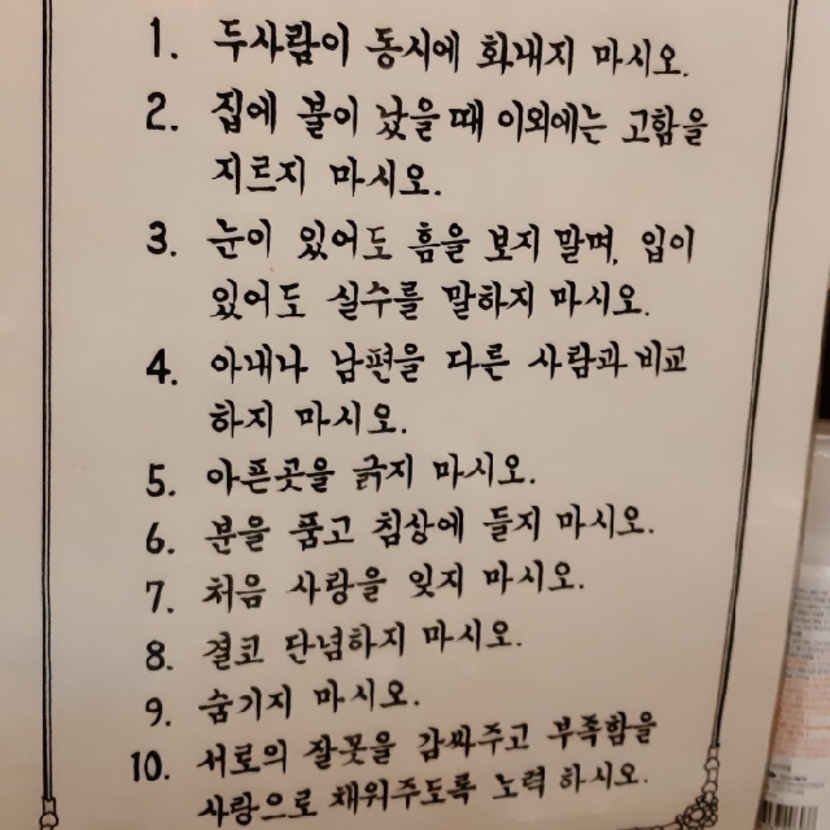 1. 두사람이 동시에 화내지 마시오.
2. 집에 불이 났을때 이외에는 고함을
지르지 마시오.
3. 눈이 있어도 흠을 보지 말며, 입이
있어도 실수를 말하지 마시오.
4. 아내나 남편을 다른 사람과 비교
하지 마시오.
5. 아픈곳을 긁지 마시오.
6. 분을 품고 침상에 들지 마시오.
7. 처음 사랑을 잊지 마시오.
8. 결코 단념하지 마시오.
9. 숨기지 마시오.
10. 서로의 잘못을 감싸주고 부족함을
사랑으로 채워주도록 노력 하시오.